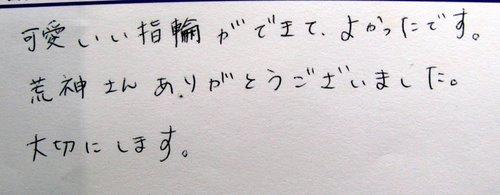 可愛いい指輪ができて、よかったです。
荒神さんありがとうございました。
大切にします。